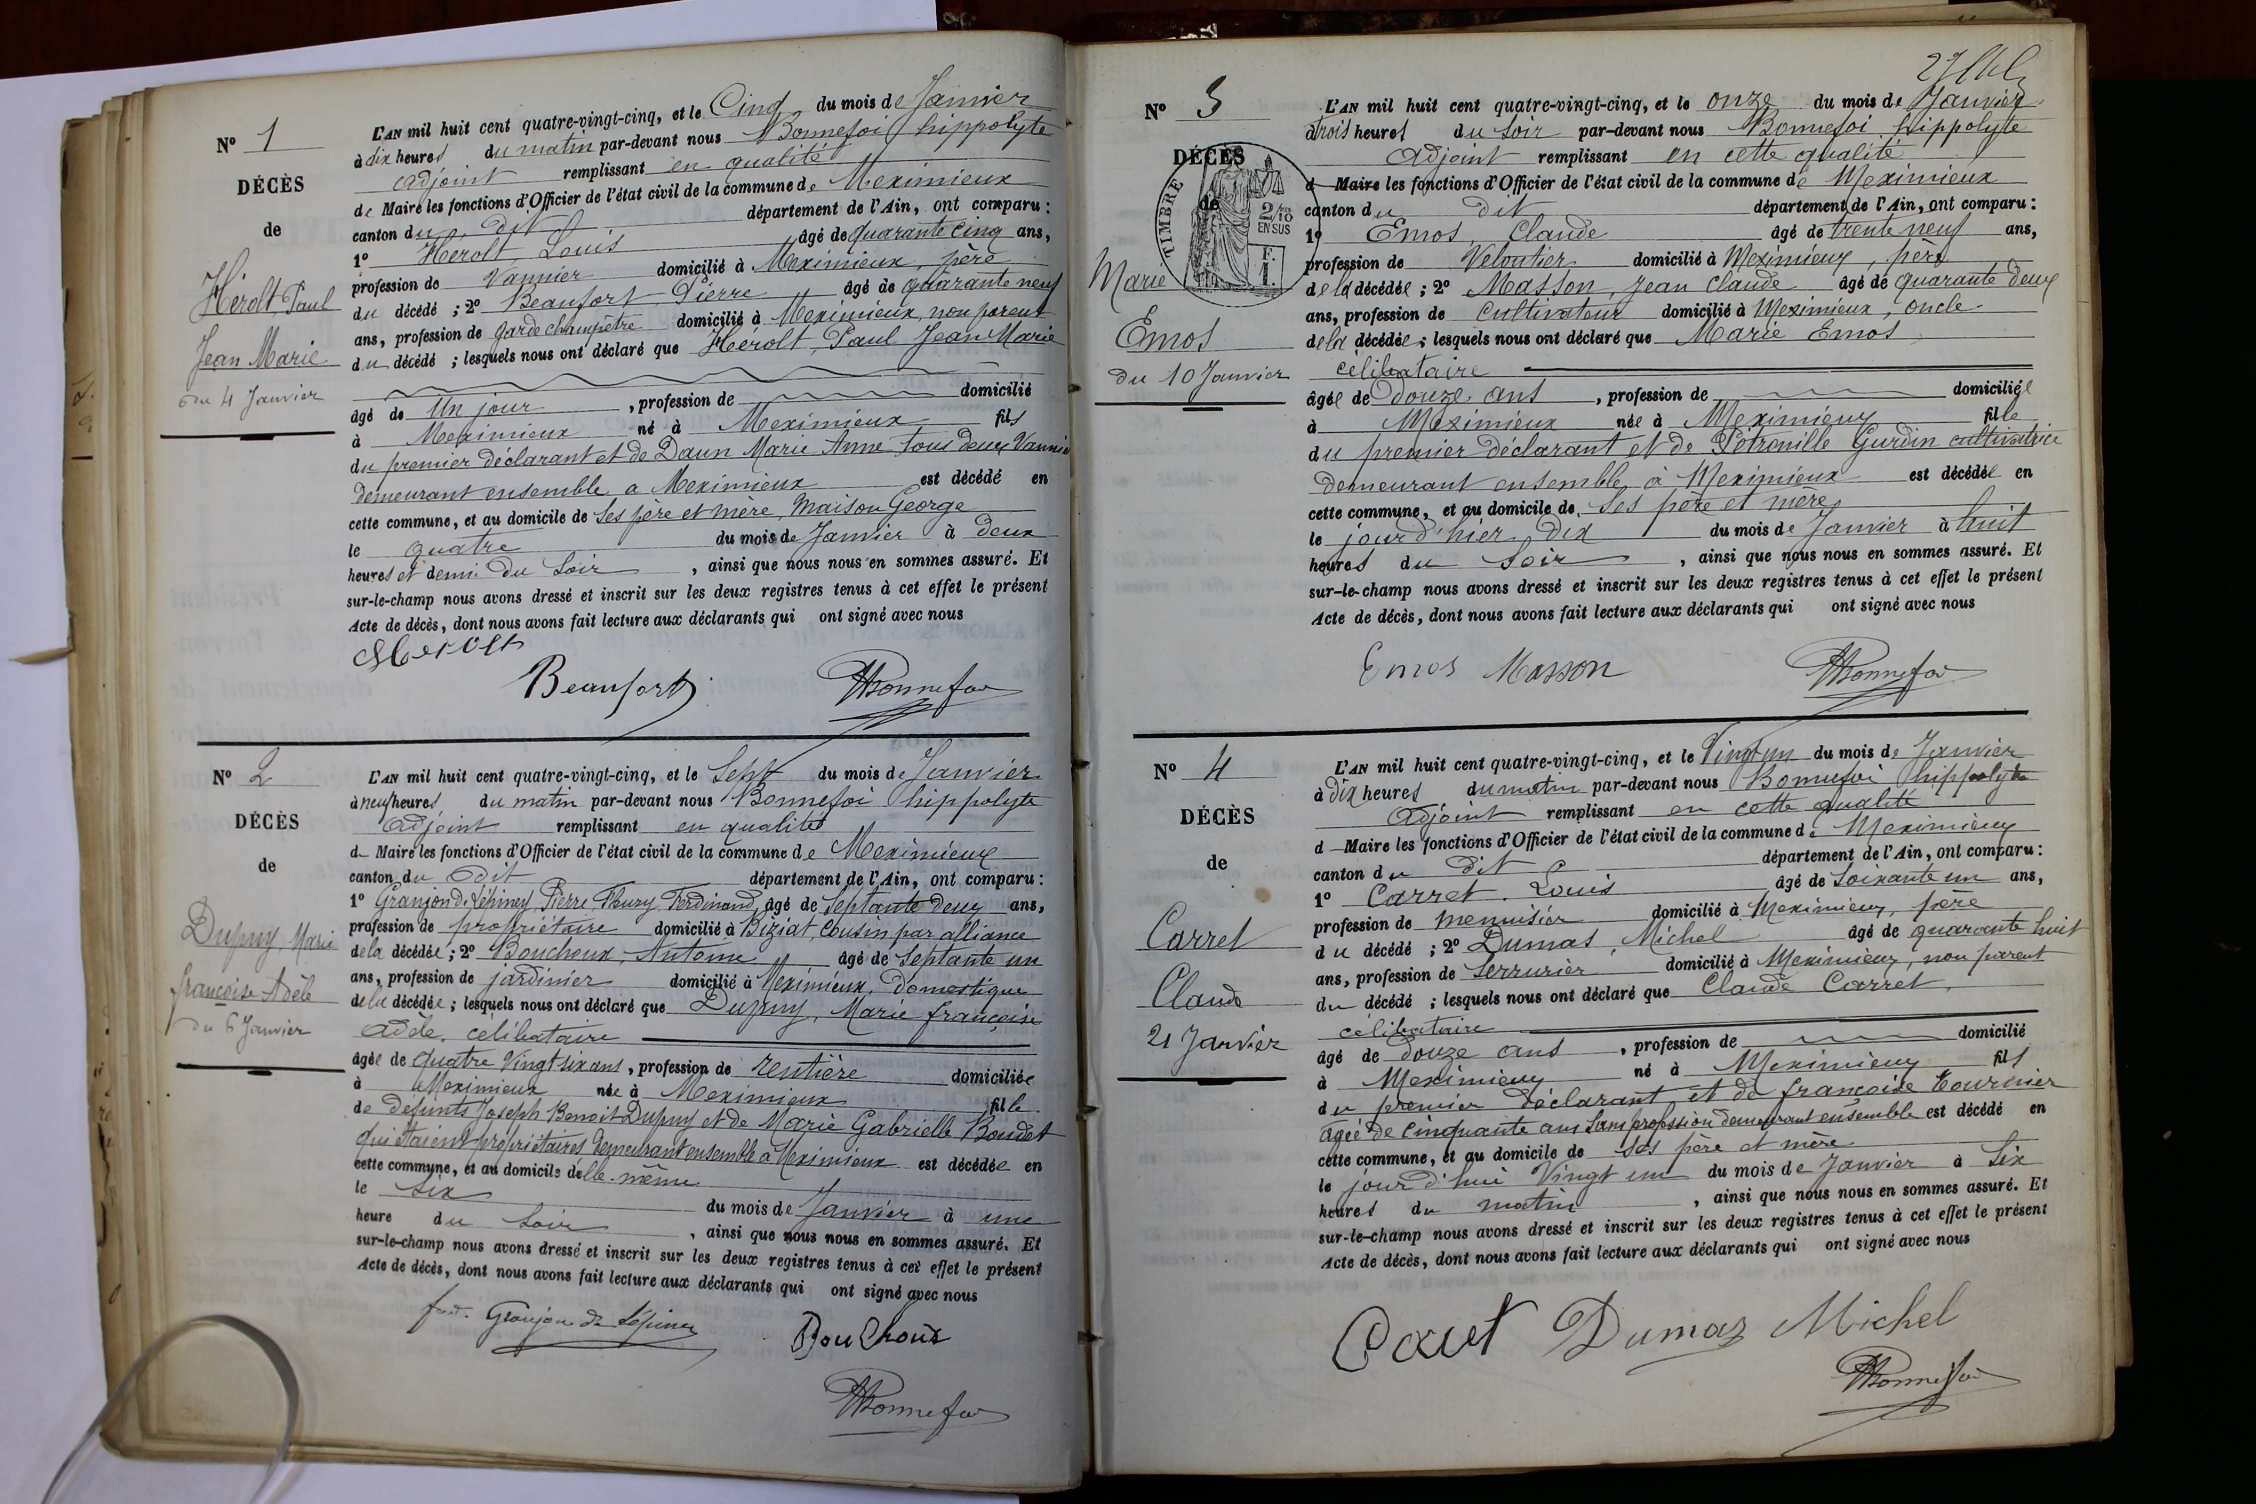 N° 1
DÉCÈS
de
Hérolt, Paul
Jean Marie
du 4 Janvier
L'AN mil huit cent quatre-vingt-cinq, et le Cinq du mois de Janvier
à dix heures du matin par-devant nous Bonnefoi hippolyte
adjoint remplissant en qualité
de Maire les fonctions d'Officier de l'état civil de la commune de Meximieux
canton du dit département de l'Ain, ont comparu :
1° Herolt, Louis âgé de quarante cinq ans,
profession de Vannier domicilié à Meximieux, père
du décédé ; 2° Beaufort Pierre âgé de quarante neuf
ans, profession de garde champêtre domicilié à Meximieux, non parent
du décédé ; lesquels nous ont déclaré que Herolt, Paul Jean Marie
âgé de Un jour , profession de domicilié
à Meximieux né à Meximieux fils
du premier déclarant et de Daun Marie Anne tous deux Vannier
demeurant ensemble a Meximieux est décédé en
cette commune, et au domicile de ses père et mère, maison George
le quatre du mois de Janvier à deux
heures et demi du soir , ainsi que nous nous en sommes assuré. Et
sur-le-champ nous avons dressé et inscrit sur les deux registres tenus à cet effet le présent
Acte de décès, dont nous avons fait lecture aux déclarants qui ont signé avec nous
Herolt
Beaufort HBonnefoi
N° 2
DÉCÈS
de
Dupuy, Marie
françoise Adèle
du 6 Janvier
L'AN mil huit cent quatre-vingt-cinq, et le Sept du mois de Janvier
à neuf heures du matin par-devant nous Bonnefoi hippolyte
adjoint remplissant en qualité
de Maire les fonctions d'Officier de l'état civil de la commune de Meximieux
canton du dit département de l'Ain, ont comparu :
1° Granjon de Lépiney, Pierre, Fleury, Ferdinand, âgé de Septante deux ans,
profession de propriétaire domicilié à Biziat, Cousin par alliance
de la décédée ; 2° Bouchoux, Antoine âgé de Septante un
ans, profession de jardinier domicilié à Meximieux, domestique
de la décédée ; lesquels nous ont déclaré que Dupuy, Marie françoise
adèle, célibataire
âgée de quatre Vingt-six ans, profession de rentière domiciliée
à Meximieux née à Meximieux fille
de défunts Joseph Benoit Dupuy et de Marie Gabrielle Boudet
qui étaient propriétaires demeurant ensemble à Meximieux est décédée en
cette commune, et au domicile d'elle-même
le Six du mois de Janvier à une
heure du soir , ainsi que nous nous en sommes assuré. Et
sur-le-champ nous avons dressé et inscrit sur les deux registres tenus à cet effet le présent
Acte de décès, dont nous avons fait lecture aux déclarants qui ont signé avec nous
Granjon de Lépiney Bouchoux
HBonnefoi
N° 3
DÉCÈS
de
TIMBRE
2/10 EN SUS
F. 1.
Marie
Emos
du 10 Janvier
L'AN mil huit cent quatre-vingt-cinq, et le onze du mois de Janvier
à trois heures du soir par-devant nous Bonnefoi hippolyte
adjoint remplissant en cette qualité
d Maire les fonctions d'Officier de l'état civil de la commune de Meximieux
canton du dit département de l'Ain, ont comparu :
1° Emos, Claude âgé de trente neuf ans,
profession de Veloutier domicilié à Meximieux, père
de la décédée ; 2° Masson, Jean Claude âgé de quarante deux
ans, profession de Cultivateur domicilié à Meximieux, oncle
de la décédée ; lesquels nous ont déclaré que Marie Emos
célibataire
âgée de douze ans , profession de domiciliée
à Meximieux née à Meximieux fille
du premier déclarant et de Pétronille Gurdin cultivatrice
demeurant ensemble à Meximieux est décédée en
cette commune, et au domicile de ses père et mère
le jour d'hier dix du mois de Janvier à huit
heures du soir , ainsi que nous nous en sommes assuré. Et
sur-le-champ nous avons dressé et inscrit sur les deux registres tenus à cet effet le présent
Acte de décès, dont nous avons fait lecture aux déclarants qui ont signé avec nous
Emos Masson HBonnefoi
N° 4
DÉCÈS
de
Carret
Claude
21 Janvier
L'AN mil huit cent quatre-vingt-cinq, et le Vingt-un du mois de Janvier
à dix heures du matin par-devant nous Bonnefoi hippolyte
adjoint remplissant en cette qualité
d Maire les fonctions d'Officier de l'état civil de la commune de Meximieux
canton du dit département de l'Ain, ont comparu :
1° Carret. Louis âgé de Soixante un ans,
profession de menuisier domicilié à Meximieux, père
du décédé ; 2° Dumas, Michel âgé de quarante huit
ans, profession de serrurier domicilié à Meximieux, non parent
du décédé ; lesquels nous ont déclaré que Claude Carret,
célibataire
âgé de douze ans , profession de domicilié
à Meximieux né à Meximieux fils
du premier déclarant et de françoise Tournier
agée de Cinquante ans sans profession demeurant ensemble est décédé en
cette commune, et au domicile de ses père et mère
le jour d'hui Vingt un du mois de Janvier à Six
heures du matin , ainsi que nous nous en sommes assuré. Et
sur-le-champ nous avons dressé et inscrit sur les deux registres tenus à cet effet le présent
Acte de décès, dont nous avons fait lecture aux déclarants qui ont signé avec nous
Carret Dumas Michel
HBonnefoi